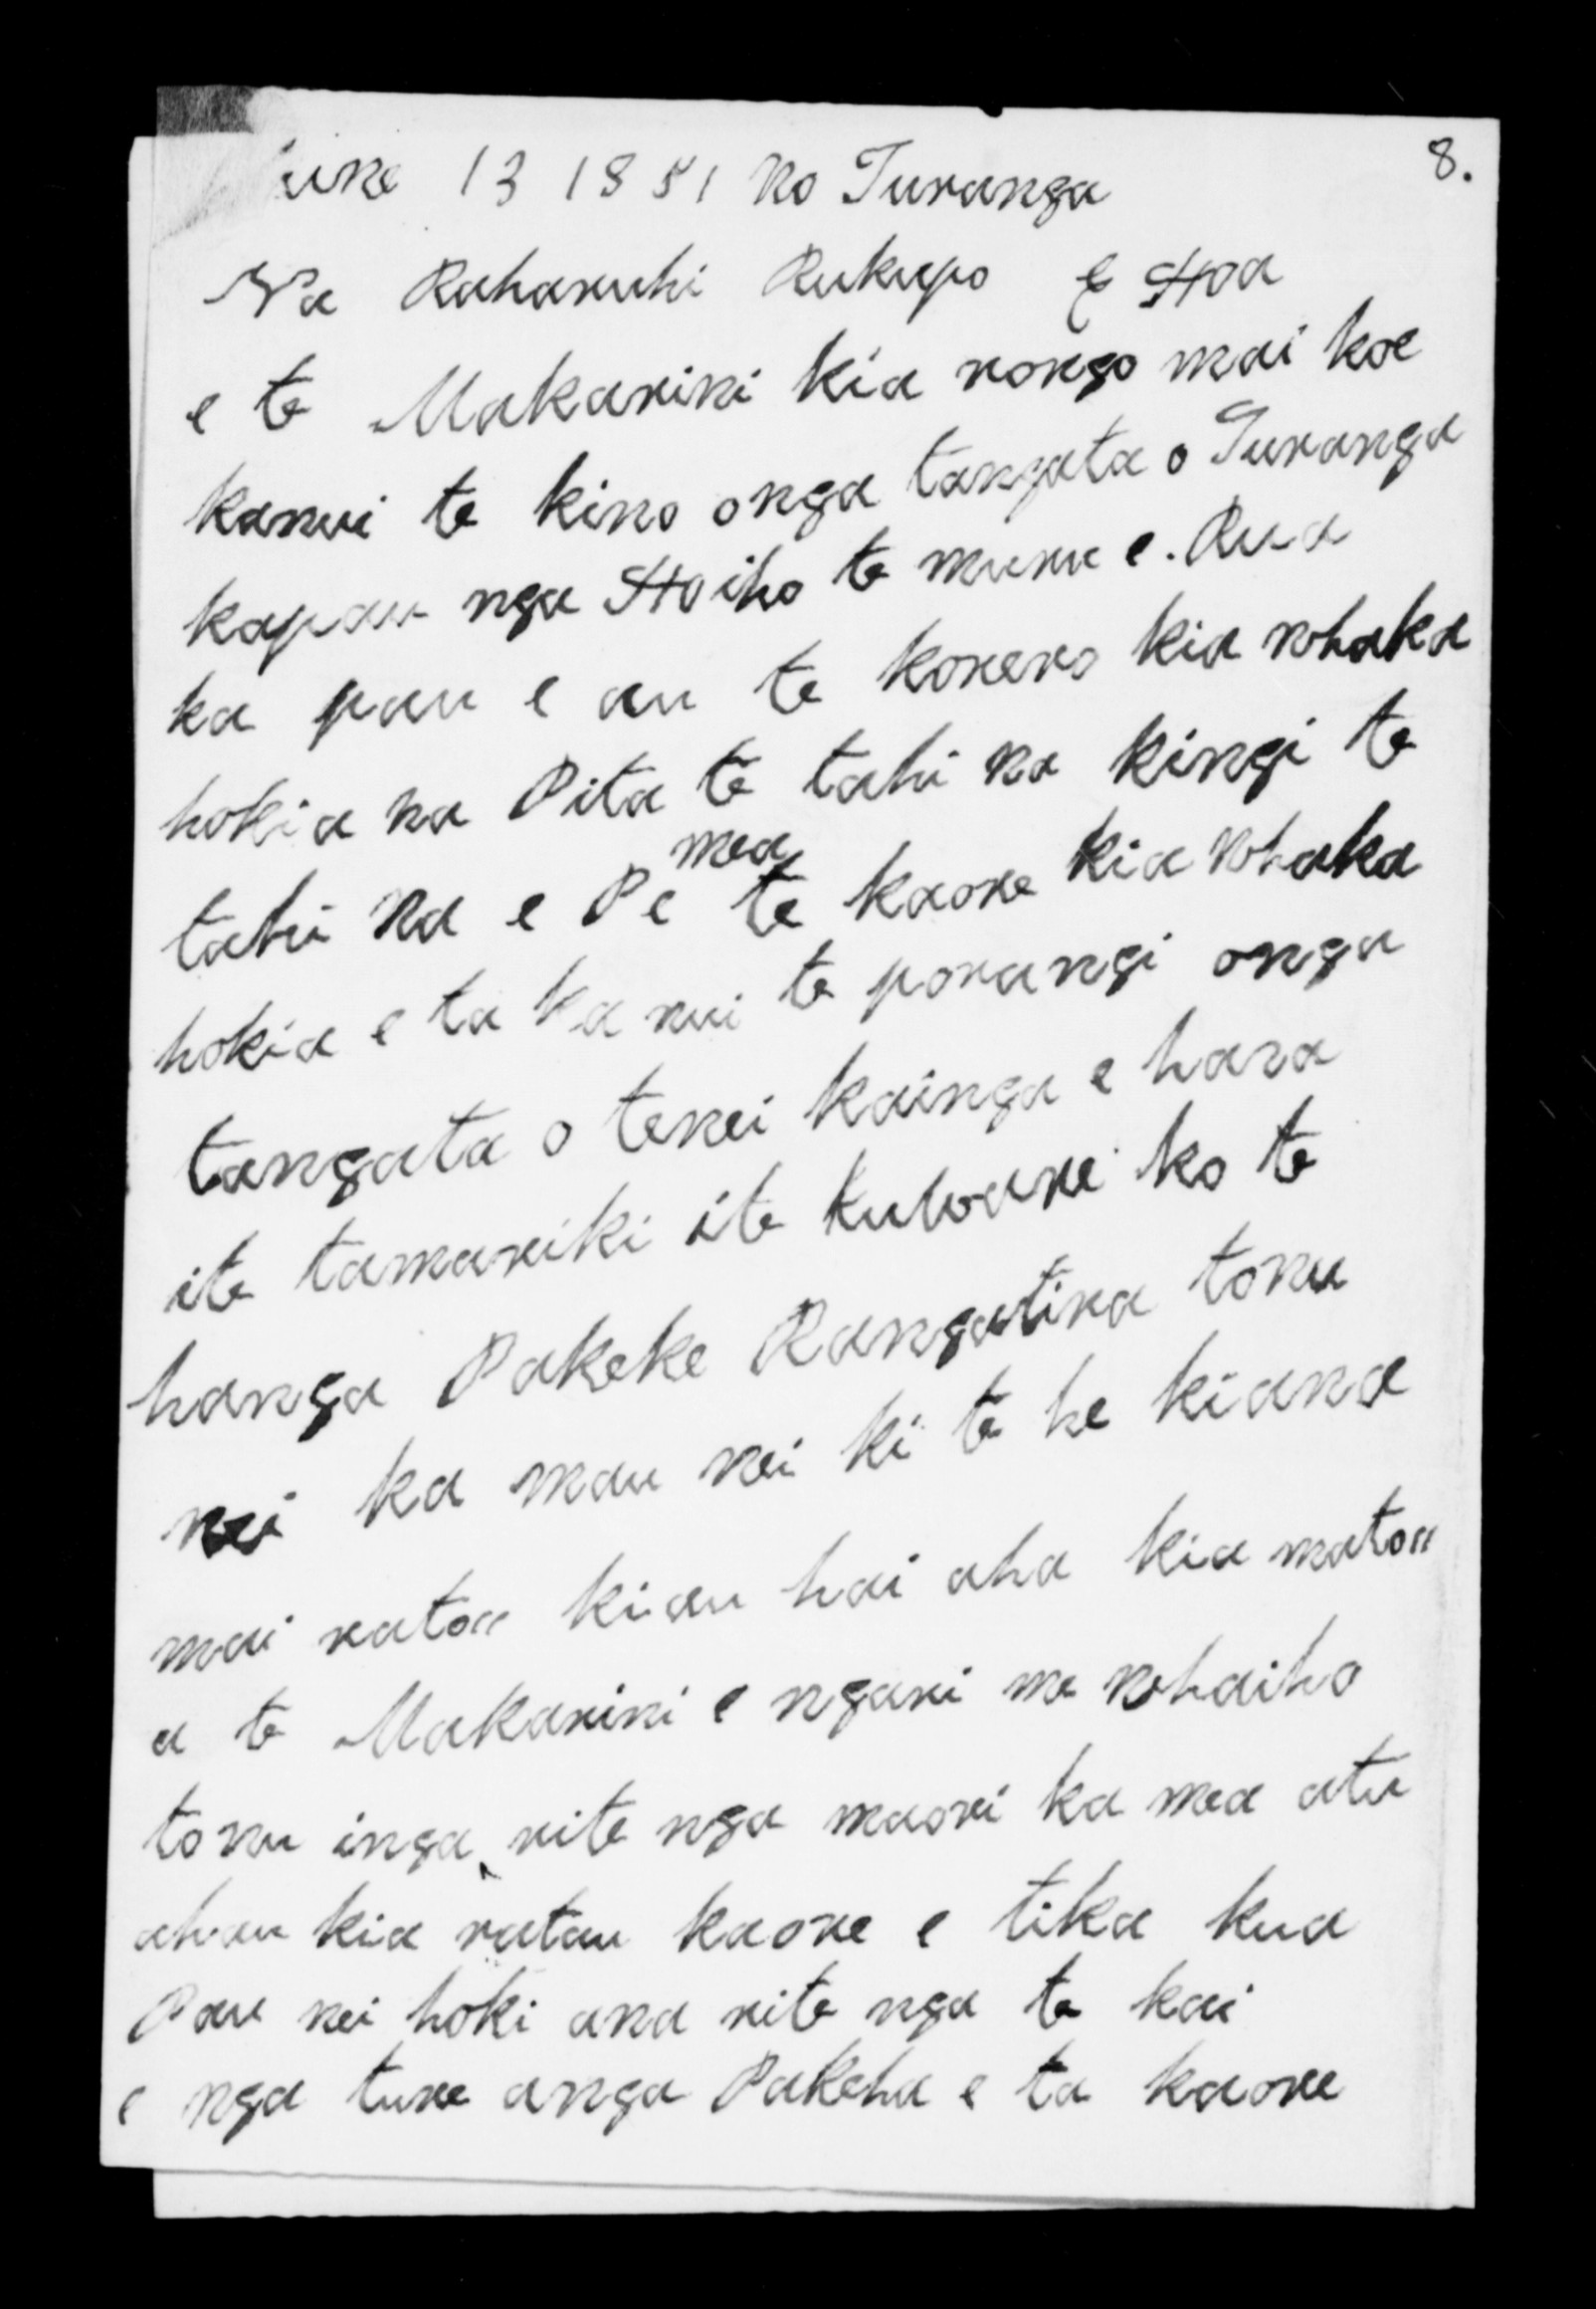 June 13 1851 no Turanga
8.
Na Raharuhi Rukupo E Hoa
e te Makarini kia rongo mai koe
kanui te kino onga tangata o Turanga
kapau nga Hoiho te muru e. Rua
ka pau e au te korero kia whaka
hokia na Pita te tahi na kingi te
tahi na e Pe mea te kaore kia whaka
hokia e ta ka nui te porangi onga
tangata o tenei kainga e hara
ite tamariki ite kuware ko te
hanga Pakeke Rangatira tonu
nei ka mau nei ki te he kiana
mai ratou kiau hai aha kia matou
a te Makarini e ngari me whaiho
tonu inga rite nga maori ka mea atu
ahau kia ratau kaore e tika kua
Pau nei hoki ana rite nga te kai
e nga ture anga Pakeha e ta kaore